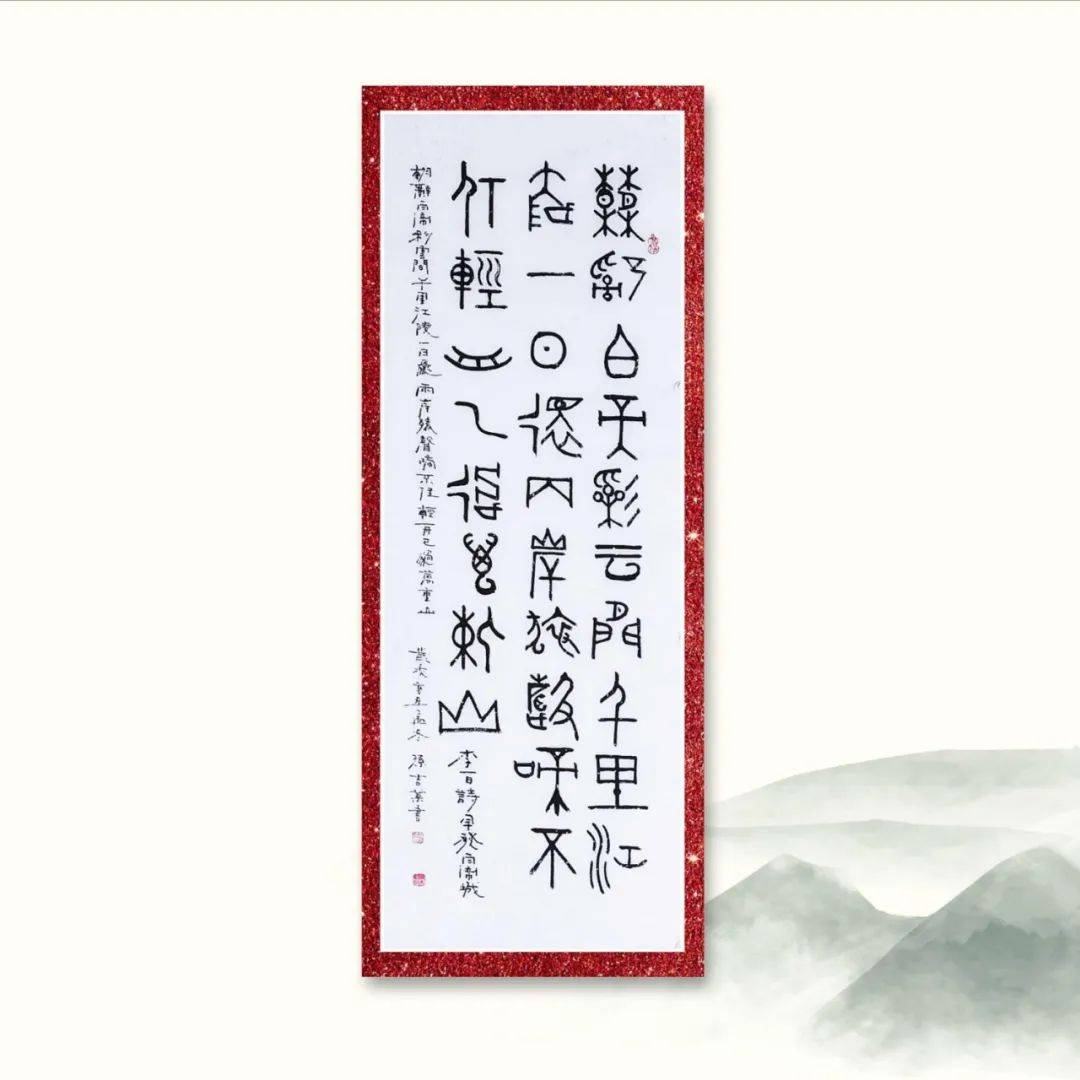 朝辭白帝彩云間千里江
陵一日還兩岸猿聲啼不
住輕舟已過萬重山
李白詩早發白帝城
朝辭白帝彩雲間千里江陵一日還兩岸猿聲啼不住輕舟已過萬重山 歲次辛丑孟冬 吉 書